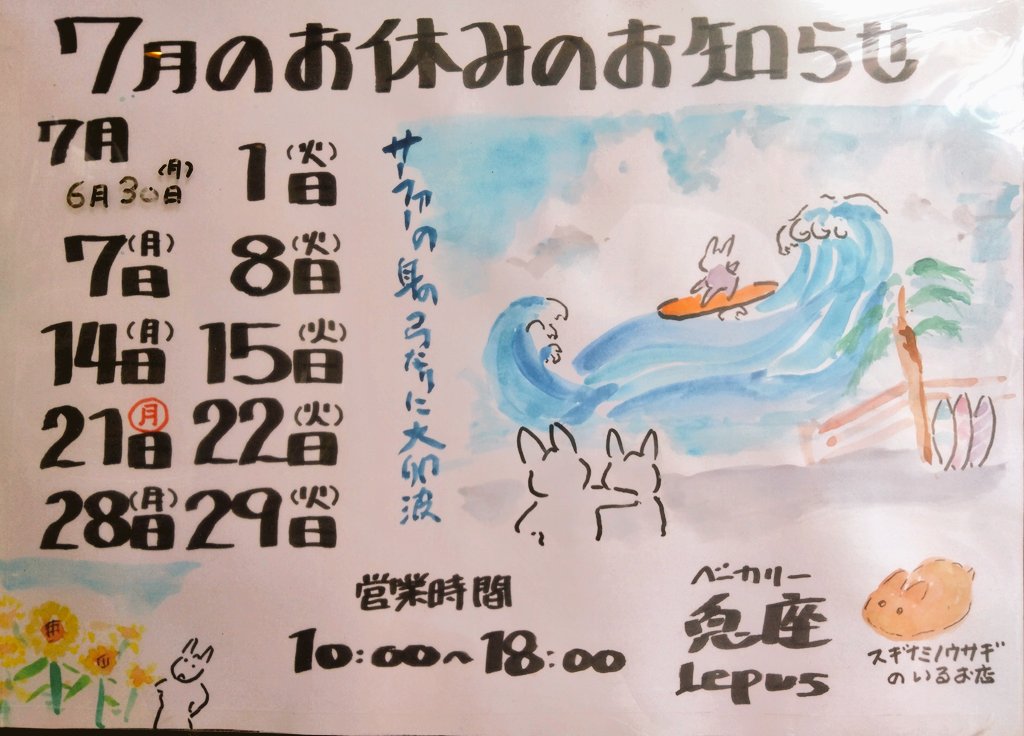 7月のお休みのお知らせ
7月
6月30日(月) 1日(火)
7日(月) 8日(火)
14日(月) 15日(火)
21日(月) 22日(火)
28日(月) 29日(火)
サーファーの肩の弓なりに大卯波
営業時間
10:00~18:00
ベーカリー
兎座
Lepus
スギナミノウサギ
のいるお店